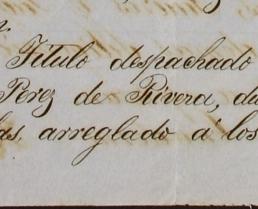 Título despachado
Perez de Rivera, da
las arreglado á los